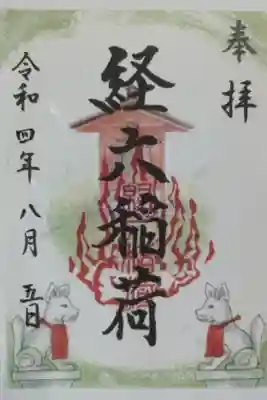 奉拝
経六稲荷
令和四年八月五日